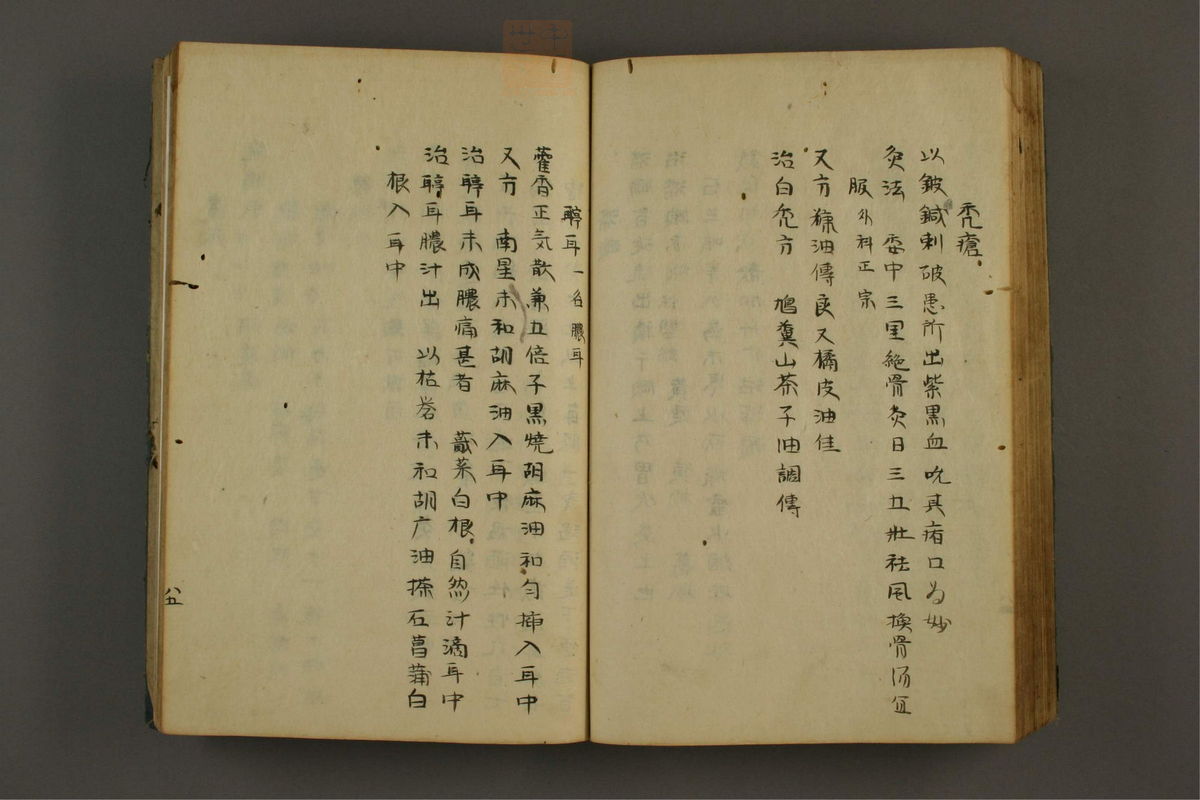 禿瘡
以鈹鍼刺破患所出紫黒血吮其瘡口為妙
灸法 委中三里絶骨灸日三五壯祛風換骨湯宜
服外科正宗
又方 糠油傅良又橘皮油佳
治白禿方 鳩糞山茶子油調傅
聤耳一名膿耳
藿香正気散兼五倍子黒焼胡麻油和匀挿入耳中
又方 南星末和胡麻油入耳中
治聤耳未成膿痛甚者 蕺菜白根自然汁滴耳中
治聤耳膿汁出 以枯礬末和胡广油搽石菖蒲白
根入耳中
八五